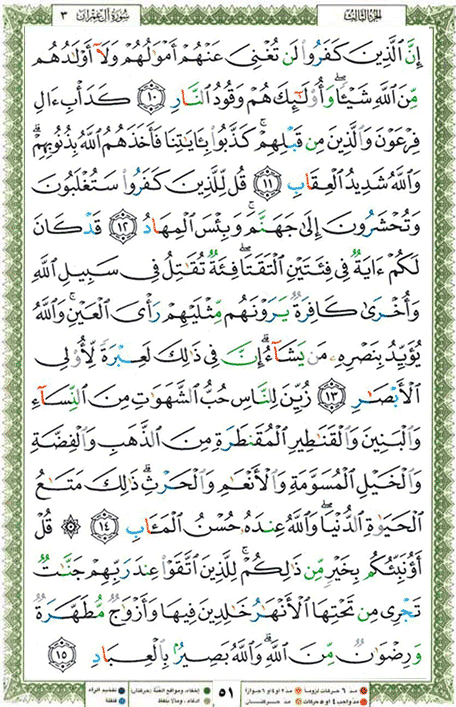 الجزء الثالث
سورة آل عمران
٣
إِنَّ ٱلَّذِينَ كَفَرُوا۟ لَن تُغْنِىَ عَنْهُمْ أَمْوَٰلُهُمْ وَلَآ أَوْلَـٰدُهُم
مِّنَ ٱللَّهِ شَيْـًٔا ۖ وَأُو۟لَـٰٓئِكَ هُمْ وَقُودُ ٱلنَّارِ ١٠ كَدَأْبِ ءَالِ
فِرْعَوْنَ وَٱلَّذِينَ مِن قَبْلِهِمْ ۚ كَذَّبُوا۟ بِـَٔايَـٰتِنَا فَأَخَذَهُمُ ٱللَّهُ بِذُنُوبِهِمْ ۗ
وَٱللَّهُ شَدِيدُ ٱلْعِقَابِ ١١ قُل لِّلَّذِينَ كَفَرُوا۟ سَتُغْلَبُونَ
وَتُحْشَرُونَ إِلَىٰ جَهَنَّمَ ۚ وَبِئْسَ ٱلْمِهَادُ ١٢ قَدْ كَانَ
لَكُمْ ءَايَةٌ فِى فِئَتَيْنِ ٱلْتَقَتَا ۖ فِئَةٌ تُقَـٰتِلُ فِى سَبِيلِ ٱللَّهِ
وَأُخْرَىٰ كَافِرَةٌ يَرَوْنَهُم مِّثْلَيْهِمْ رَأْىَ ٱلْعَيْنِ ۚ وَٱللَّهُ
يُؤَيِّدُ بِنَصْرِهِۦ مَن يَشَآءُ ۗ إِنَّ فِى ذَٰلِكَ لَعِبْرَةً لِّأُو۟لِى
ٱلْأَبْصَـٰرِ ١٣ زُيِّنَ لِلنَّاسِ حُبُّ ٱلشَّهَوَٰتِ مِنَ ٱلنِّسَآءِ
وَٱلْبَنِينَ وَٱلْقَنَـٰطِيرِ ٱلْمُقَنطَرَةِ مِنَ ٱلذَّهَبِ وَٱلْفِضَّةِ
وَٱلْخَيْلِ ٱلْمُسَوَّمَةِ وَٱلْأَنْعَـٰمِ وَٱلْحَرْثِ ۗ ذَٰلِكَ مَتَـٰعُ
ٱلْحَيَوٰةِ ٱلدُّنْيَا ۖ وَٱللَّهُ عِندَهُۥ حُسْنُ ٱلْمَـَٔابِ ١٤ ۞ قُلْ
أَؤُنَبِّئُكُم بِخَيْرٍ مِّن ذَٰلِكُمْ ۚ لِلَّذِينَ ٱتَّقَوْا۟ عِندَ رَبِّهِمْ جَنَّـٰتٌ
تَجْرِى مِن تَحْتِهَا ٱلْأَنْهَـٰرُ خَـٰلِدِينَ فِيهَا وَأَزْوَٰجٌ مُّطَهَّرَةٌ
وَرِضْوَٰنٌ مِّنَ ٱللَّهِ ۗ وَٱللَّهُ بَصِيرٌۢ بِٱلْعِبَادِ ١٥
مد ٦ حركات لزوماً
مد ٢ او ٤ او ٦ جوازاً
إخفاء، ومواقع الغنة (حركتان)
تفخيم الراء
مد واجب ٤ او ٥ حركات
مد حركتان
٥١
ادغام، وما لا يلفظ
قلقلة